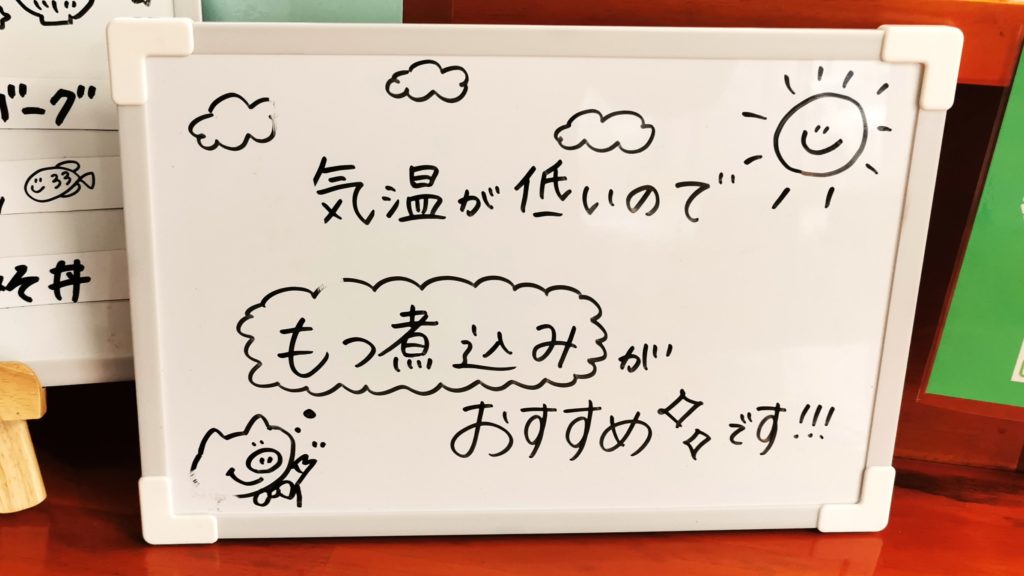 バーグ
33
そ丼
気温が低いので
もつ煮込みが
おすすめです!!!